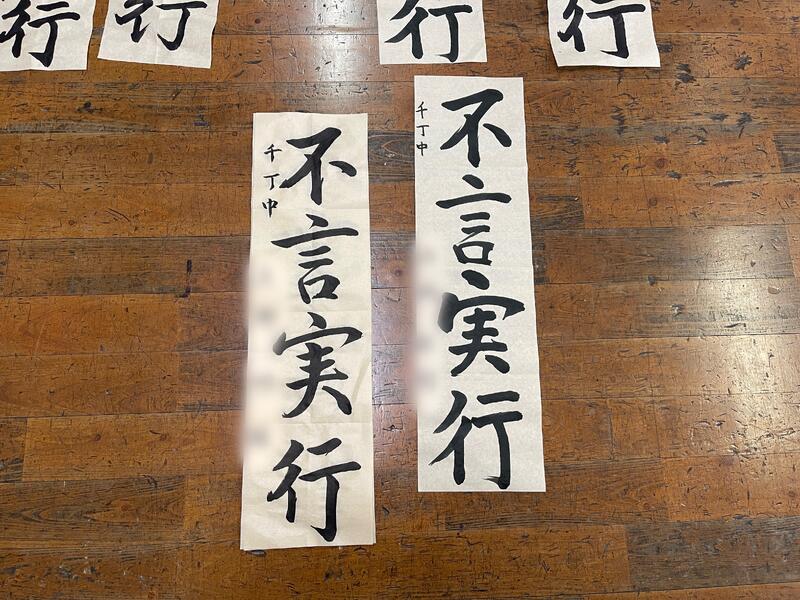 行
行
行
行
不言実行
千丁中
不言実行
千丁中